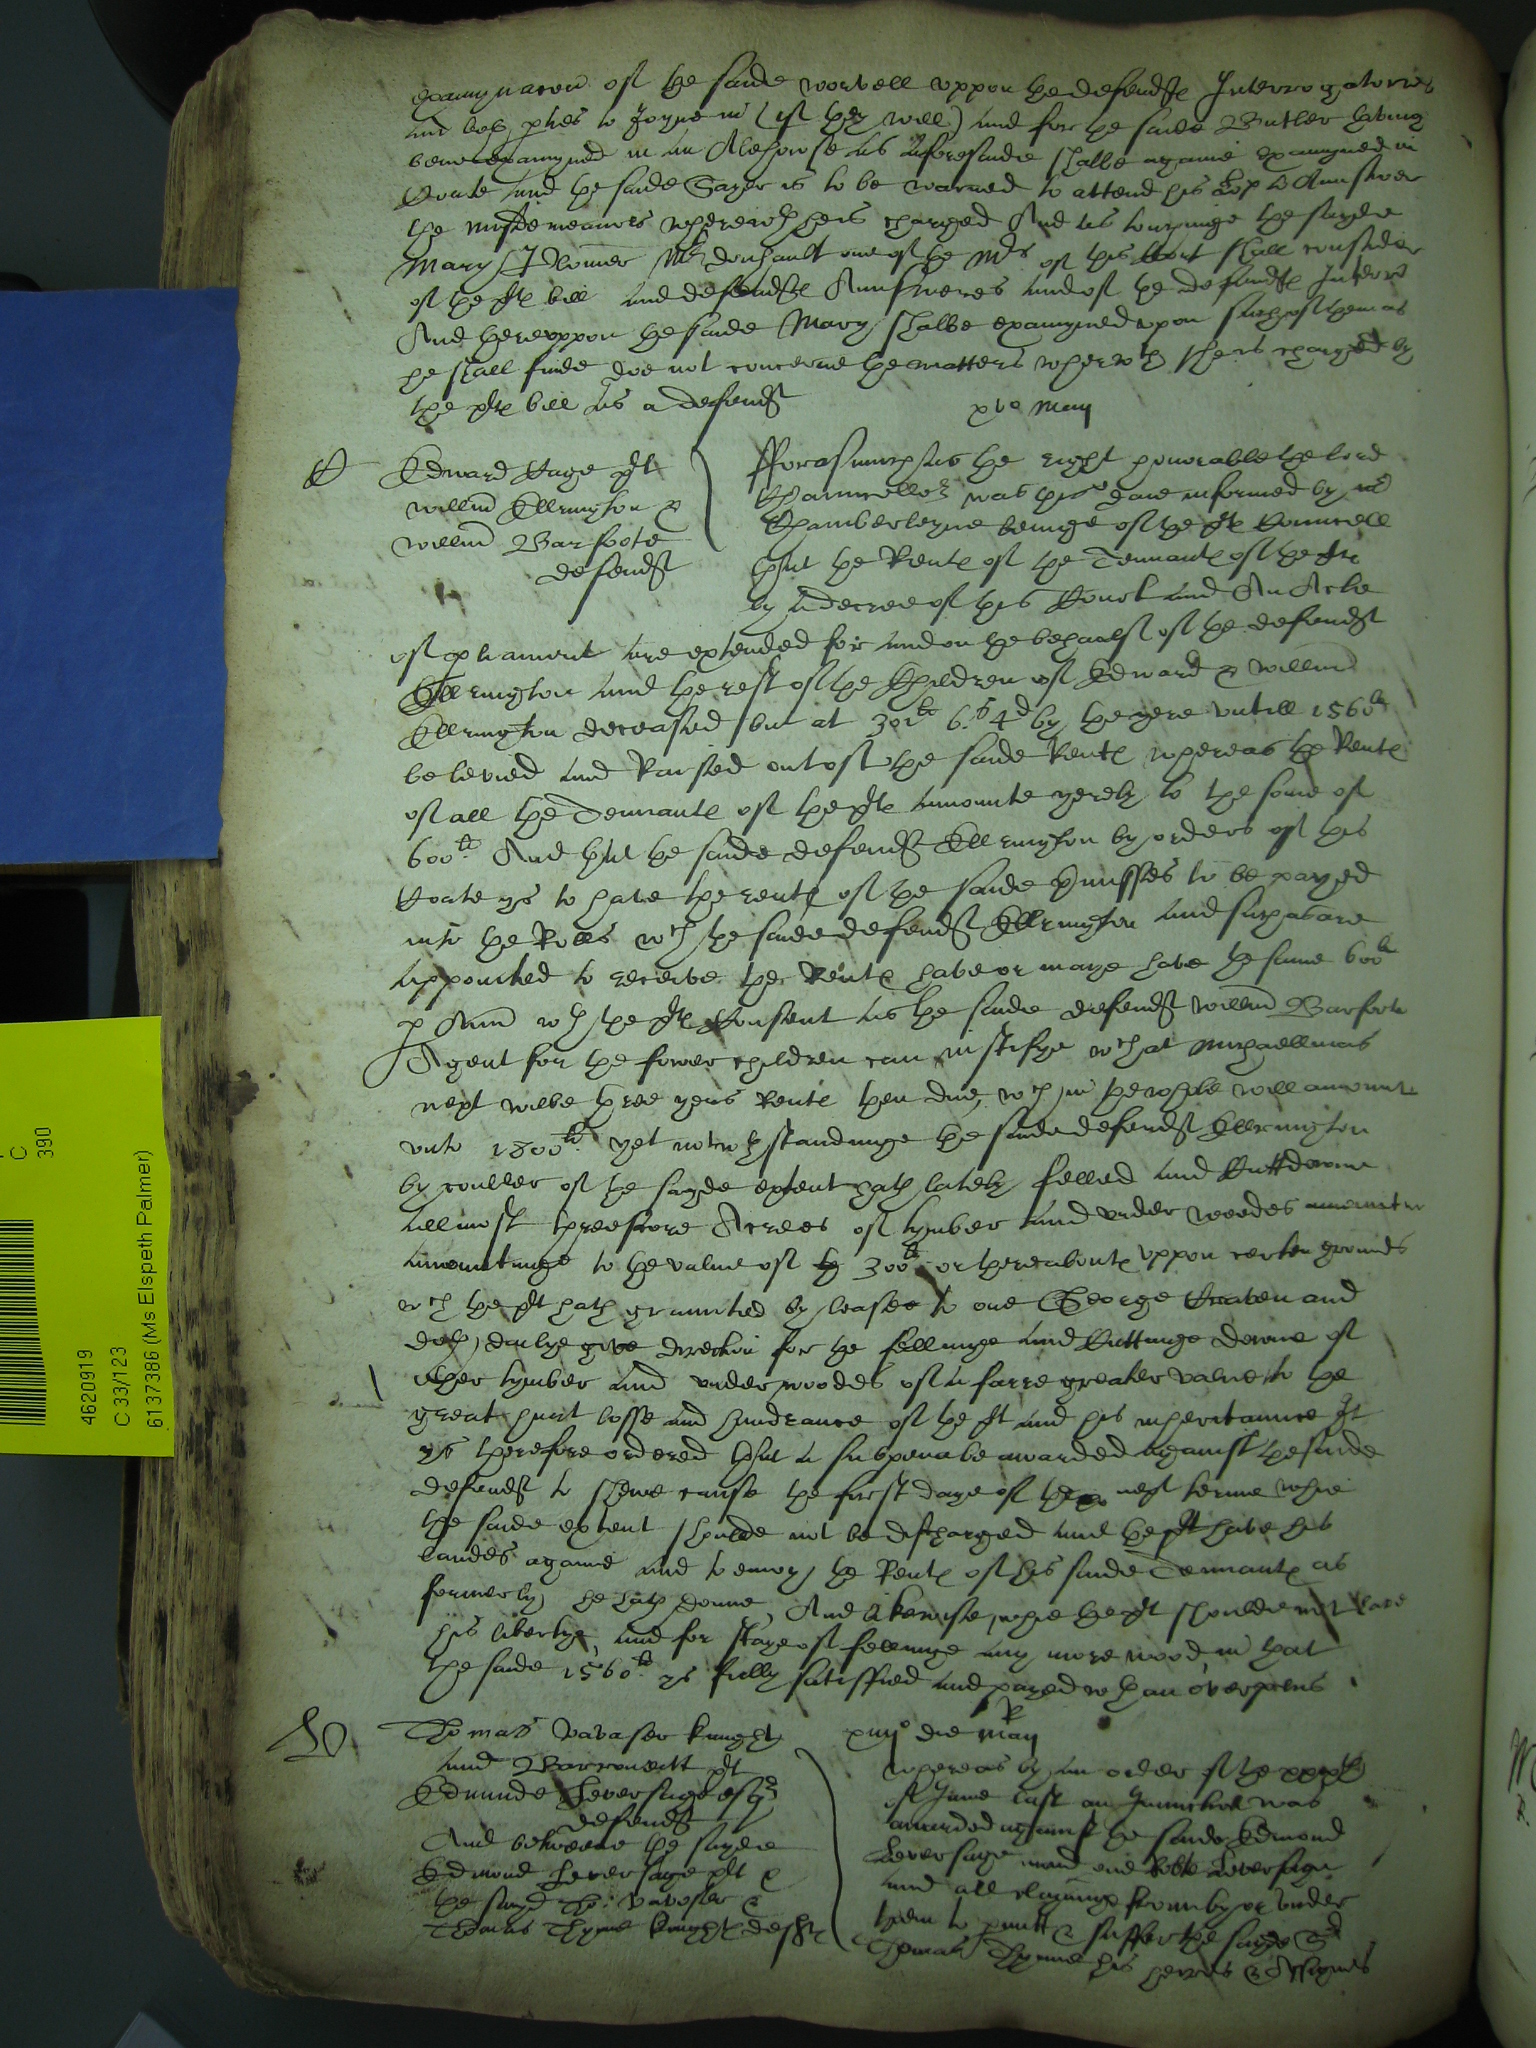 examynacon of the saide worvell uppon the defendtes Interrogatories
and both pties to Joyne in (if they will) and for the saide Butler having
bene examyned in an Alehowse as aforesaide shalbe againe examyned in
Courte and the saide Sayer is to be warned to attend his Lop to Aunswer
the misdemeanors wherewth he is charged And as touchinge the sayde
Mary Mr donhault one of the Mrs of this Court shall consider
of the pltes bill and defendtes Aunsweres and of the defendtes Interr
And thereuppon the saide Mary shalbe examyned upon such of them as
he shall finde doe not concerne the matters wherwth she is charged by
the pltes bill as a defendt
xvo May
Edward Hage plt
Willm Ellrington &
Willm Barfoote
defendt
Fforasmuch as the right honorable the lord
Chauncellor was this daie informed by mr
Chamberleyne beinge of the pltes Councell
that the Rentes of the Tennantes of the plt
by a decree of this Court and An Acte
of pliament are extended for and on the behaalf of the defendt
Ellrington and the rest of the Children of Edward & Willm
Ellrington deceased but at 301li 6s 4d by the yere untill 1560li
be levied and Raised out of the saide Rentes whereas the Rentes
of all the Tennantes of the plt amounte yerely to the some of
600li And that the saide defendt Ellrington by orders of this
Courte ys to have the rentes of the saide pmisses to be payed
into the Rolls wch the saide defendt Ellrington and such as are
appointed to receive the Rentes have or maye have the same 600li
p Ann wth the pltes Consent as the saide defendt Willm Barfoote
Agent for the fower children can iustifye wch at Michaellmas
next wilbe three yeres Rentes then due, wch in the whole will amount
unto 1800li yet notwthstandinge the saide defendt Ellrington
by couller of the sayde extent hath lately felled and Cuttdowne
allmost threescore Acrees of tymber and under woodes
amountinge to the value of 300li or thereaboutes uppon certen groundes
wch the plt hath graunted by leases to one George and
doth dailye give direction for the fellinge and Cuttinge downe of
other tymber and underwoodes of a farre greater value to the
great hurt losse and hindrance of the plt and his inheritaunce It
ys therefore ordered that a subpena be awarded against the saide
defendt to shewe cause the first daye of the next terme whie
the saide extent shoulde not be discharged and the plt have his
landes againe and to enioy the Rentes of his saide Tennantes as
formerly he hath donne, And likewise whie the plt shoulde not have
his libertye and for staye of fellinge any more wood in that
the saide 1560li ys fully satisfied and payed wth an overplus
Thomas Vavaser knight
and Barronett plt
Edmunde Leversage esqr
defendt
And betweene the sayde
Edmond Leversage plt &
the sayd Tho: Vavaser &
Thomas Thynne knightes defts
xiiijo die May
Whereas by an order of the
of June last an Iniunction was
awarded against the saide Edmond
Leversage and one Leversage
and all clayminge from by or under
them to pmitt & suffer the sayde Sr
Thomas Thynne his heires & Assignes
4620919
C 33/123
6137386 (Ms Elspeth Palmer)
C
390